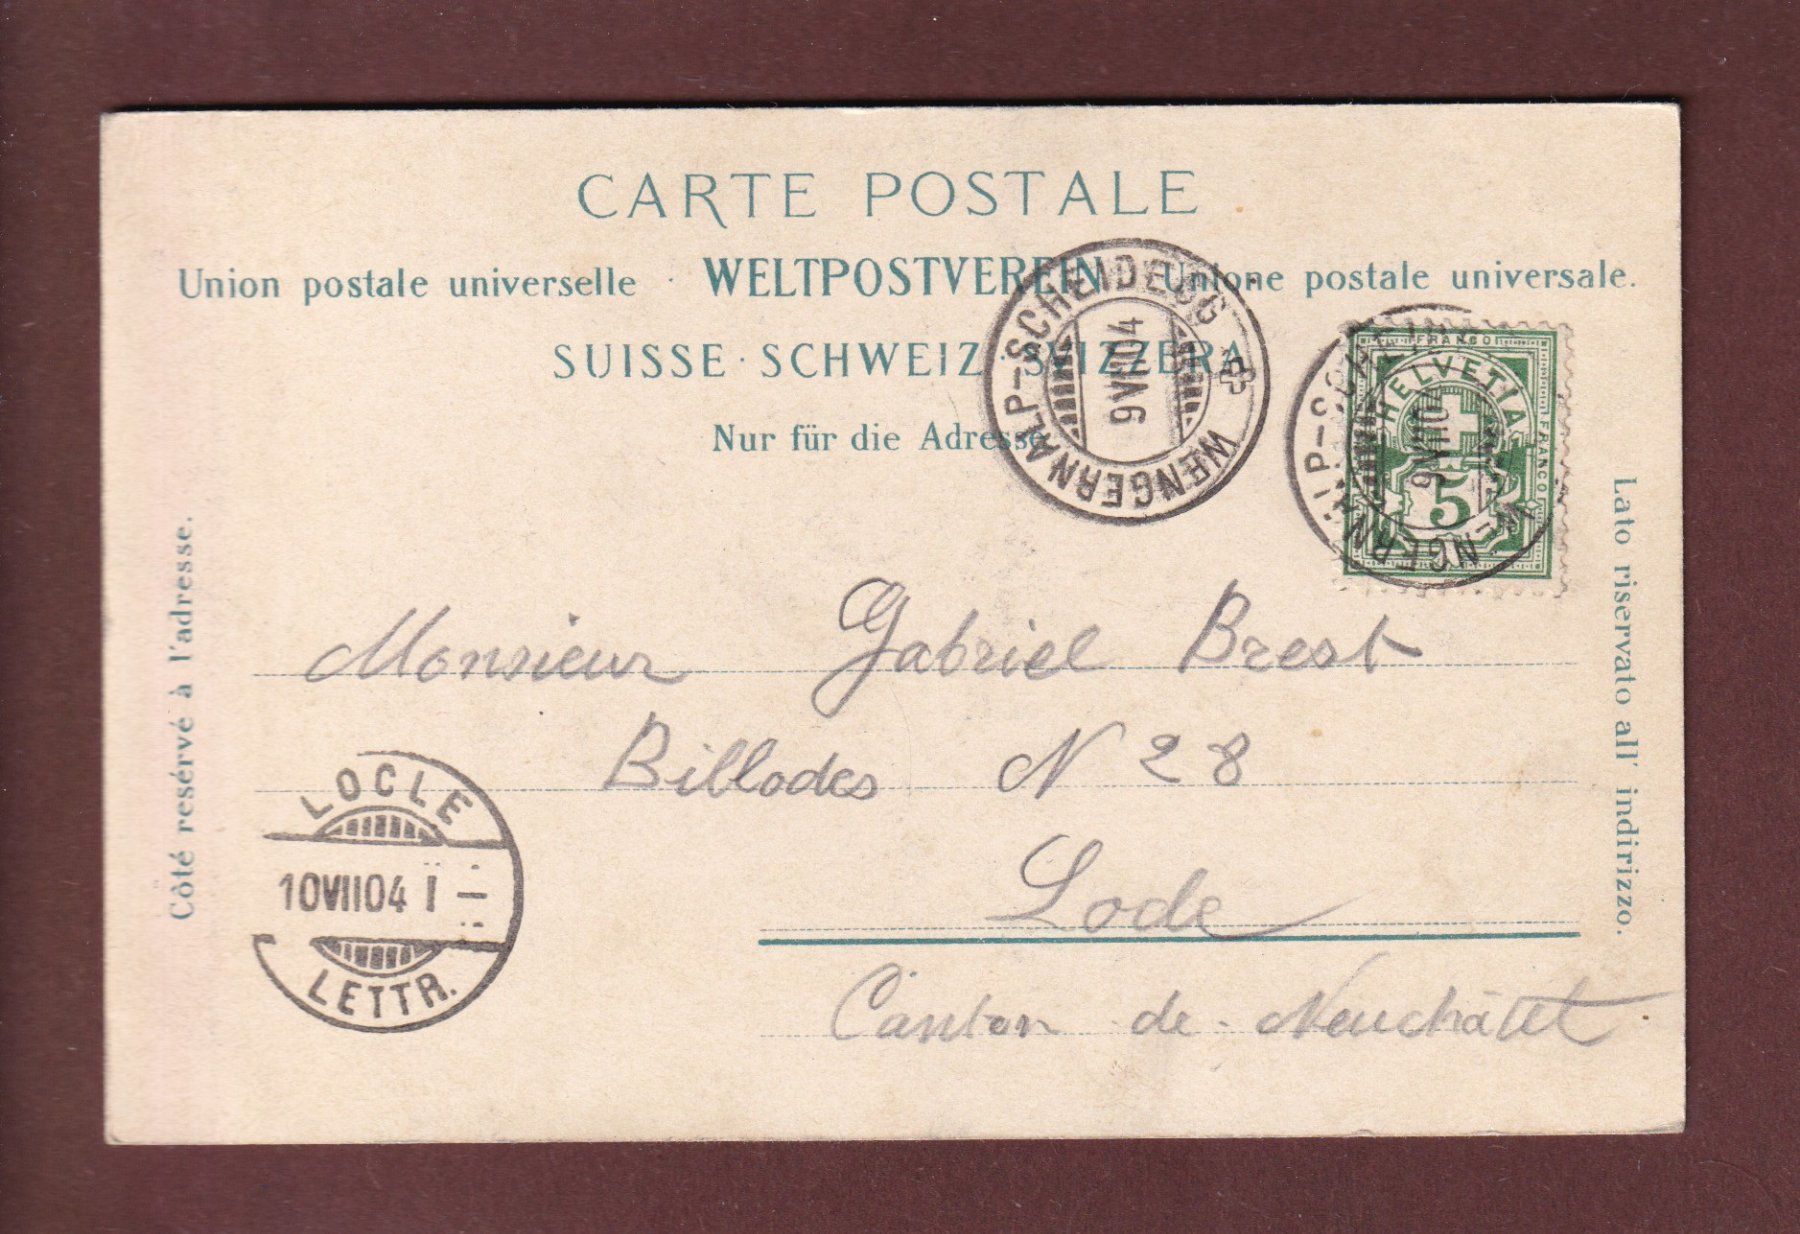 CARTE POSTALE
Union postale universelle · WELTPOSTVEREIN · Unione postale universale.
SUISSE · SCHWEIZ · SVIZZERA
Nur für die Adresse
WENGERNALP-SCHEIDEGG
9 VII 04
FRANCO
HELVETIA
FRANCO
5
9 VII 04
Côté resérvé à l'adresse.
Lato riservato all' indirizzo.
Monsieur Gabriel Brest
Billodes N 28
Locle
Canton de Neuchâtel
LOCLE
10 VII 04 I
LETTR.